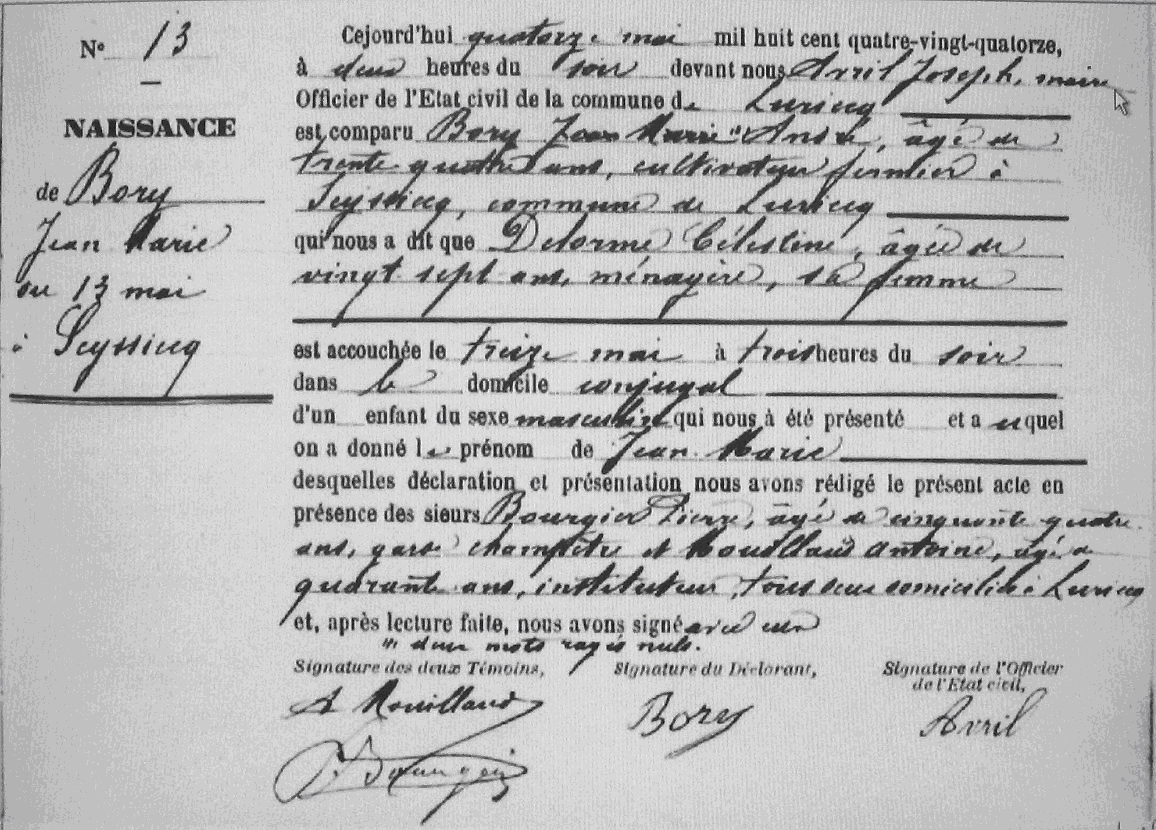 N° 13
NAISSANCE
de Bory
Jean Marie
du 13 mai
à Seyssiecq
Cejourd'hui quatorze mai mil huit cent quatre-vingt-quatorze,
à deux heures du soir devant nous Avril Joseph, maire
Officier de l'Etat civil de la commune de Luriecq
est comparu Bory Jean Marie " André, âgé de
trente quatre ans, cultivateur fermier à
Seyssiecq, commune de Luriecq
qui nous a dit que Delorme Célestine, âgée de
vingt sept ans, ménagère, sa femme
est accouchée le treize mai à trois heures du soir
dans le domicile conjugal
d'un enfant du sexe masculin qui nous a été présenté et auquel
on a donné le prénom de Jean Marie
desquelles déclaration et présentation nous avons rédigé le présent acte en
présence des sieurs Bourgier Pierre, âgé de cinquante quatre
ans, garde champêtre et Mouillaud Antoine, âgé de
quarante ans, instituteur, tous deux domiciliés à Luriecq
et, après lecture faite, nous avons signé avec eux
" deux mots rayés nuls.
Signature des deux Témoins, Signature du Déclarant, Signature de l'Officier
de l'Etat civil,
A Mouillaud Bory Avril